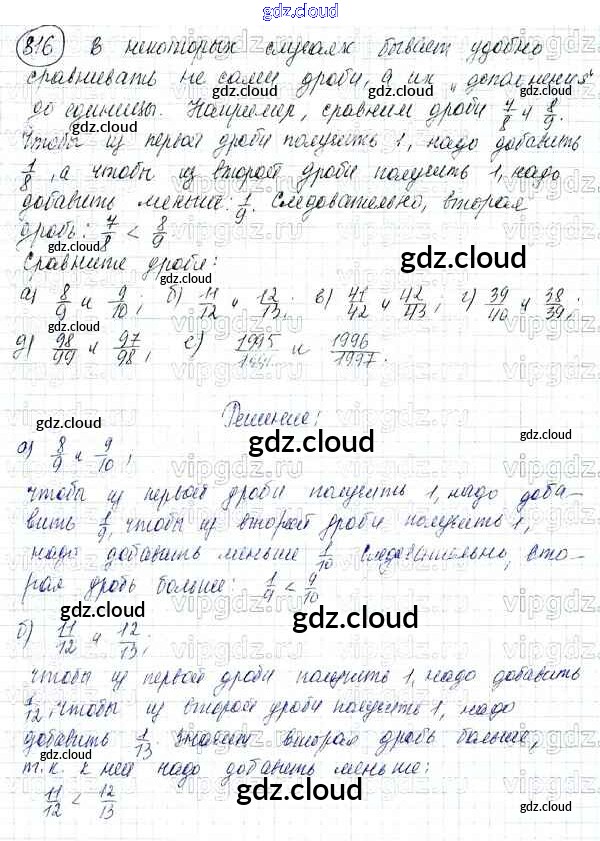 gdz.cloud
816 В некоторых случаях бывает удобно
сравнивать не сами дроби, а их "дополнения"
до единицы. Например, сравним дроби 7/8 и 8/9.
Чтобы из первой дроби получить 1, надо добавить
1/8, а чтобы из второй дроби получить 1, надо
добавить меньше: 1/9. Следовательно, вторая
дробь: 7/8 < 8/9
Сравните дроби:
а) 8/9 и 9/10; б) 11/12 и 12/13; в) 41/42 и 42/43; г) 39/40 и 38/39;
д) 98/99 и 97/98; е) 1995/1996 и 1996/1997.
Решение:
а) 8/9 и 9/10;
чтобы из первой дроби получить 1, надо доба-
вить 1/9, чтобы из второй дроби получить 1,
надо добавить меньше 1/10 Следовательно, вто-
рая дробь больше: 1/9 < 9/10
б) 11/12 и 12/13;
Чтобы из первой дроби получить 1, надо добавить
1/12, чтобы из второй дроби получить 1, надо
добавить 1/13. Значит вторая дробь больше,
т.к. к ней надо добавить меньше:
11/12 < 12/13
gdz.cloud
vipgdz.ru